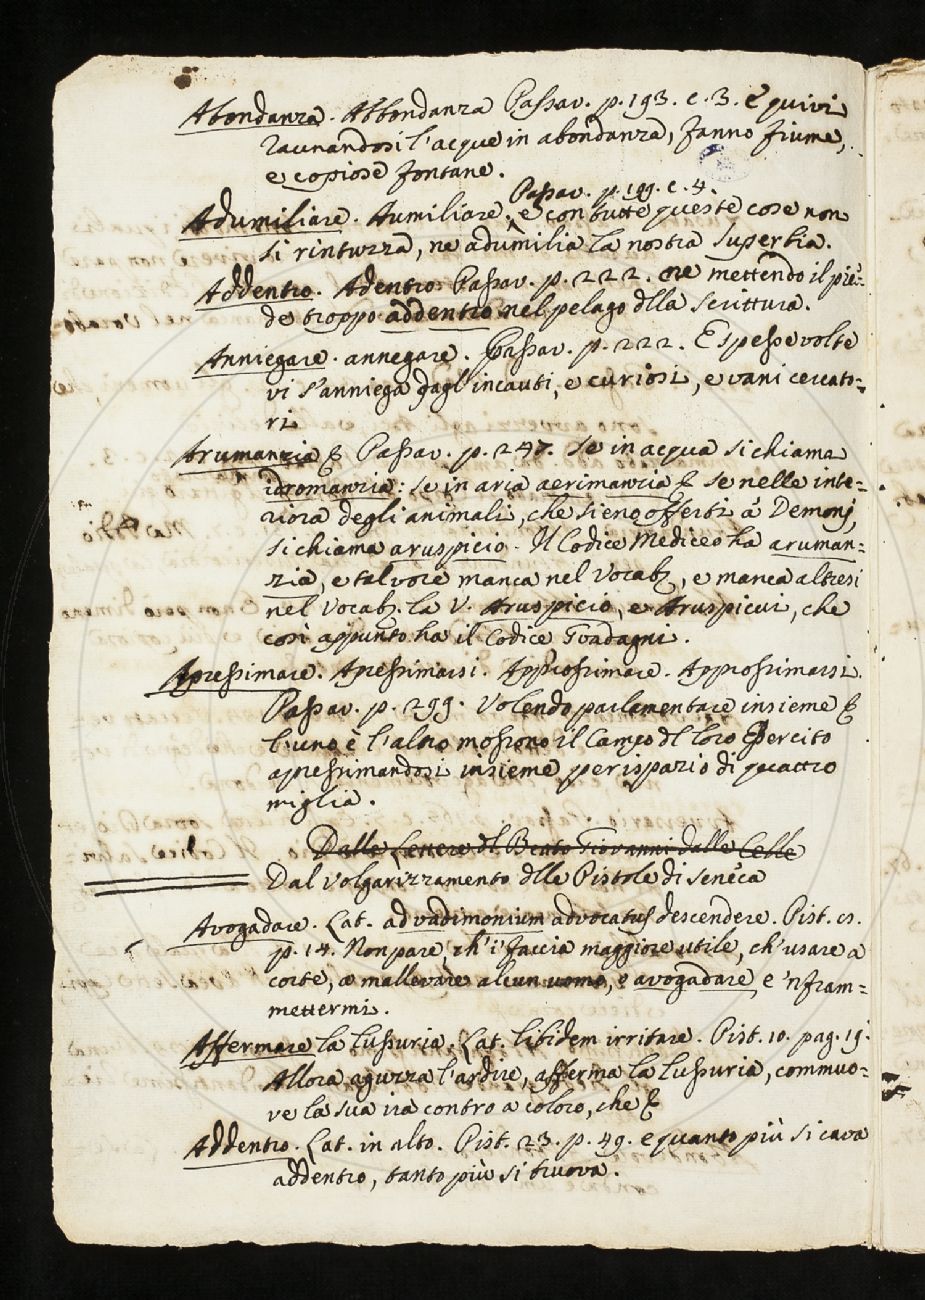 Abondanza. Abbondanza Passav. p. 193. c. 3. e quivi
raunandosi l'acque in abondanza, fanno fiume,
e copiose fontane.
Passav. p. 199. c. 4.
Adumiliare. Aumiliare, e con tutte queste cose non
si rintuzza, ne adumilia la nostra superbia.
Addentro. Adentro. Passav. p. 222. ne mettendo il pie=
de troppo addentro nel pelago dlla scrittura.
Anniegare. annegare. Passav. p. 222. E spesse volte
vi s'anniega gagl'incauti, e curiosi, e vani cercato=
ri
Arumanzia & Passav. p. 247. se in acqua si chiama
idromanzia: se in aria aerimanzia & se nelle inte=
riora degli animali, che sieno offerti à Demonj
si chiama aruspicio. Il Codice Mediceo ha aruman=
zia, e tal voce manca nel Vocab., e manca altresi
nel Vocab. la V. Aruspicio, e Aruspicii, che
così appunto ha il Codice Guadagni.
Apressimare. Apressimarsi. Approssimare. Approssimarsi.
Passav. p. 299. Volendo parlamentare insieme &
l'uno è l'altro mossono il Campo dl loro Esercito
apressimandosi insieme per ispazio di quattro
miglia.
Dalle Lettere dl Beato Giovanni dalle Celle
Dal Volgarizzamento dlle Pistole di Seneca
Avogadare. Lat. ad vadimonium advocatus descendere. Pist. cs.
p. 14. Non pare, ch'i' faccia maggiore utile, ch'usare a
corte, e mallevare alcun uomo, e avogadare, e 'nfram=
mettermi.
Affermare la lussuria. Lat. libidem irritare. Pist. 10. pag. 19.
Allora aguzza l'ardire, afferma la lussuria, commuo=
ve la sua ira contro a coloro, che &
Addentro. Lat. in alto. Pist. 23. p. 49. e quanto più si cava
addentro, tanto più si truova.